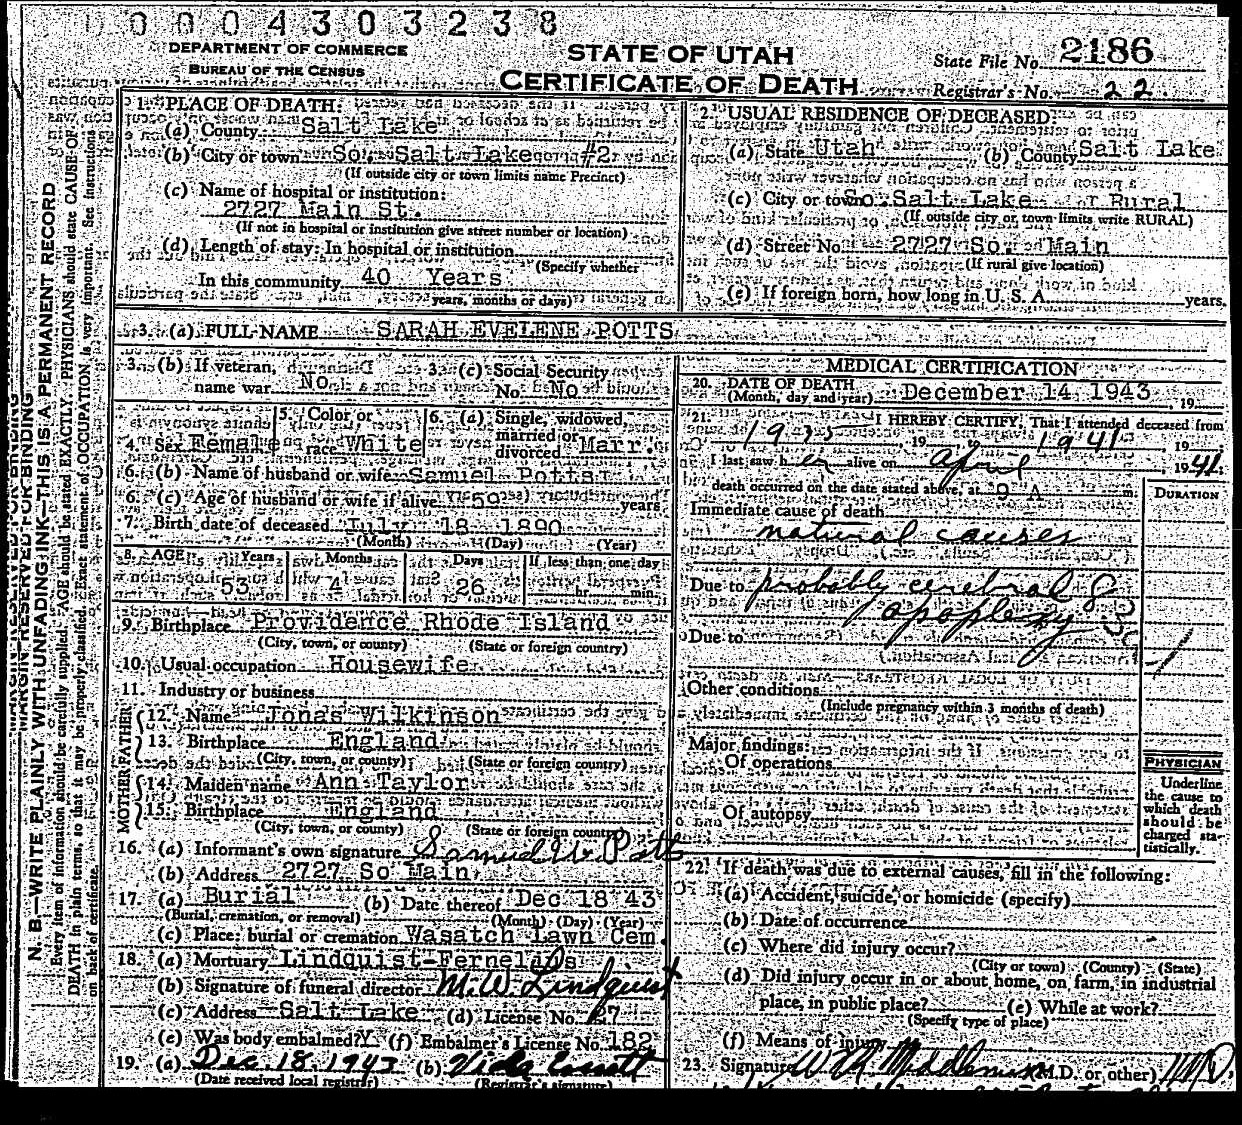 0 0 0 4 3 0 3 2 3 8
DEPARTMENT OF COMMERCE
BUREAU OF THE CENSUS
STATE OF UTAH
CERTIFICATE OF DEATH
State File No. 2186
Registrar's No. 22
N. B.—WRITE PLAINLY WITH UNFADING INK—THIS IS A PERMANENT RECORD
Every item of information should be carefully supplied. AGE should be stated EXACTLY. PHYSICIANS should state CAUSE OF
DEATH in plain terms, so that it may be properly classified. Exact statement of OCCUPATION is very important. See Instructions
on back of certificate.
MARGIN RESERVED FOR BINDING
1. PLACE OF DEATH:
(a) County Salt Lake
(b) City or town So. Salt Lake #2
(If outside city or town limits name Precinct)
(c) Name of hospital or institution:
2727 Main St.
(If not in hospital or institution give street number or location)
(d) Length of stay: In hospital or institution
(Specify whether
In this community 40 Years
years, months or days)
2. USUAL RESIDENCE OF DECEASED:
(a) State Utah (b) County Salt Lake
(c) City or town So. Salt Lake or Rural
(If outside city or town limits write RURAL)
(d) Street No. 2727 So. Main
(If rural give location)
(e) If foreign born, how long in U. S. A. years.
3. (a) FULL NAME SARAH EVELENE POTTS
3. (b) If veteran, name war No
3. (c) Social Security No. No
4. Sex Female
5. Color or race White
6. (a) Single, widowed, married or divorced Marr.
6. (b) Name of husband or wife Samuel Potts
6. (c) Age of husband or wife if alive 59 years
7. Birth date of deceased July 18 1890
(Month) (Day) (Year)
8. AGE Years Months Days If less than one day
53 4 26 hr. min.
9. Birthplace Providence Rhode Island
(City, town, or county) (State or foreign country)
10. Usual occupation Housewife
11. Industry or business
FATHER
12. Name Jonas Wilkinson
13. Birthplace England
(City, town, or county) (State or foreign country)
MOTHER
14. Maiden name Ann Taylor
15. Birthplace England
(City, town, or county) (State or foreign country)
16. (a) Informant's own signature Samuel W. Potts
(b) Address 2727 So Main
17. (a) Burial (b) Date thereof Dec 18 43
(Burial, cremation, or removal) (Month) (Day) (Year)
(c) Place: burial or cremation Wasatch Lawn Cem.
18. (a) Mortuary Lindquist-Fernelius
(b) Signature of funeral director M. W. Lindquist
(c) Address Salt Lake (d) License No. 27
(e) Was body embalmed? Y (f) Embalmer's License No. 182
19. (a) Dec. 18, 1943 (b) Vida
(Date received local registrar) (Registrar's signature)
MEDICAL CERTIFICATION
20. DATE OF DEATH December 14 1943, 19
(Month, day and year)
21. I HEREBY CERTIFY, That I attended deceased from
1935, 19 to 1941, 19
I last saw her alive on April, 1941,
death occurred on the date stated above, at 9 A m.
DURATION
Immediate cause of death
natural causes
Due to probably cerebral
apoplexy
83a
Due to
Other conditions
(Include pregnancy within 3 months of death)
Major findings:
Of operations
Of autopsy
PHYSICIAN
Underline
the cause to
which death
should be
charged sta-
tistically.
22. If death was due to external causes, fill in the following:
(a) Accident, suicide, or homicide (specify)
(b) Date of occurrence
(c) Where did injury occur?
(City or town) (County) (State)
(d) Did injury occur in or about home, on farm, in industrial
place, in public place? (e) While at work?
(Specify type of place)
(f) Means of injury
23. Signature W H Middlemiss (M.D. or other) M.D.